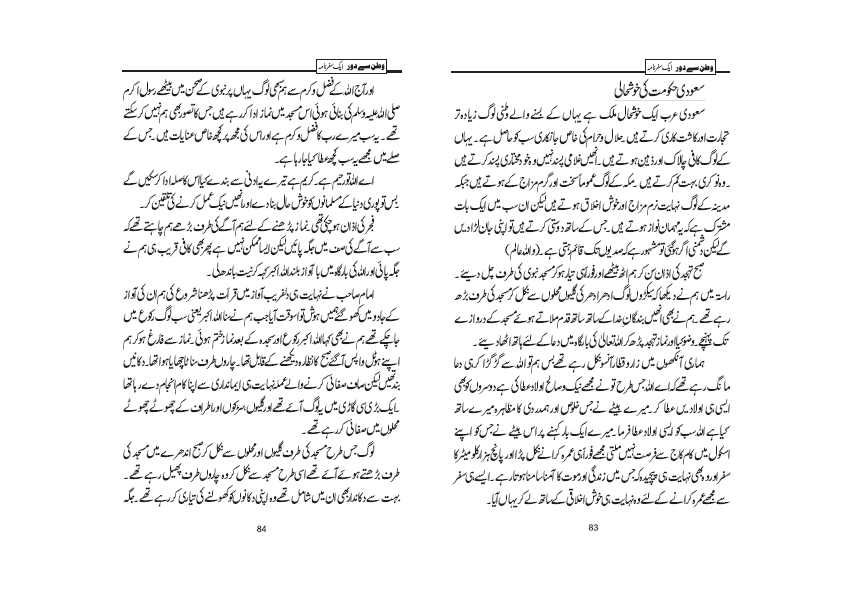 وطن سے دور ایک سفرنامہ
سعودی حکومت کی خوشحالی
سعودی عرب ایک خوشحال ملک ہے یہاں کے بسنے والے وطنی لوگ زیادہ تر
تجارت اور کاشت کاری کرتے ہیں۔ حلال و حرام کی خاص جانکاری سب کو حاصل ہے۔ یہاں
کے لوگ کافی چالاک اور ذہین ہوتے ہیں۔ انھیں غلامی پسند نہیں وہ خود مختاری پسند کرتے ہیں
۔ وہ نوکری بہت کم کرتے ہیں۔ مکہ کے لوگ عموماً سخت اور گرم مزاج کے ہوتے ہیں جبکہ
مدینہ کے لوگ نہایت نرم مزاج اور خوش اخلاق ہوتے ہیں لیکن ان سب میں ایک بات
مشترک ہے کہ یہ مہمان نواز ہوتے ہیں۔ جس کے ساتھ دوستی کرتے ہیں تو اپنی جان لڑا دیں
گے لیکن دشمنی اگر ہوئی تو مشہور ہے کہ صدیوں تک قائم رہتی ہے۔ (واللہ عالم)
صبح تہجد کی اذان سن کر ہم اٹھ بیٹھے اور فوراً ہی تیار ہو کر مسجد نبوی کی طرف چل دیئے۔
راستہ میں ہم نے دیکھا کہ سیکڑوں لوگ ادھر ادھر کی گلیوں محلوں سے نکل کر مسجد کی طرف بڑھ
رہے تھے۔ ہم نے بھی انھیں بندگانِ خدا کے ساتھ ساتھ قدم ملاتے ہوئے مسجد کے دروازے
تک پہنچے۔ وضو کیا اور نماز تہجد پڑھ کر اللہ تعالیٰ کی بارگاہ میں دعا کے لئے ہاتھ اٹھا دیئے۔
ہماری آنکھوں میں زار و قطار آنسو نکل رہے تھے بس ہم تو اللہ سے گڑگڑا کر یہی دعا
مانگ رہے تھے کہ اے اللہ جس طرح تو نے مجھے نیک و صالح اولاد عطا کی ہے دوسروں کو بھی
ایسی ہی اولادیں عطا کر۔ میرے بیٹے نے جس خلوص اور ہمدردی کا مظاہرہ میرے ساتھ
کیا ہے اللہ سب کو ایسی اولاد عطا فرما۔ میرے ایک بار کہنے پر اس بیٹے نے جس کو اپنے
اسکول میں کام کاج سے فرصت نہیں ملتی مجھے فوراً ہی عمرہ کرانے نکل پڑا اور پانچ ہزار کلومیٹر کا
سفر اور وہ بھی نہایت ہی پیچیدہ کہ جس میں زندگی اور موت کا آمنا سامنا ہوتا رہے۔ ایسے ہی سفر
سے مجھے عمرہ کرانے کے لئے وہ نہایت ہی خوش اخلاقی کے ساتھ لے کر یہاں آیا۔
83
وطن سے دور ایک سفرنامہ
اور آج اللہ کے فضل و کرم سے ہم سبھی لوگ یہاں پر نبوی کے صحن میں بیٹھے رسول اکرم
صلی اللہ علیہ وسلم کی بنائی ہوئی اس مسجد میں نماز ادا کر رہے ہیں جس کا تصور بھی ہم نہیں کر سکتے
تھے۔ یہ سب میرے رب کا فضل و کرم ہے اور اس کی مجھ پر کچھ خاص عنایات ہیں۔ جس کے
صلے میں مجھے یہ سب کچھ عطا کیا جا رہا ہے۔
اے اللہ تو رحیم ہے۔ کریم ہے تیرے یہ ادنیٰ سے بندے کیا اس کا صلہ ادا کر سکیں گے
بس تو پوری دنیا کے مسلمانوں کو خوش حال بنا دے اور انھیں نیک عمل کرنے کی تلقین کر۔
فجر کی اذان ہو چکی تھی۔ نماز پڑھنے کے لئے ہم آگے کی طرف بڑھے ہم چاہتے تھے کہ
سب سے آگے کی صف میں جگہ پائیں لیکن ایسا ممکن نہیں ہے پھر بھی کافی قریب ہی ہم نے
جگہ پائی اور اللہ کی بارگاہ میں با آواز بلند اللہ اکبر کہہ کر نیت باندھ لی۔
امام صاحب نے نہایت ہی دلفریب آواز میں قرأت پڑھنا شروع کی ہم ان کی آواز
کے جادو میں کھو گئے ہمیں ہوش تو اسوقت آیا جب ہم نے سنا اللہ اکبر یعنی سب لوگ رکوع میں
جا چکے تھے ہم نے بھی کہا اللہ اکبر رکوع اور سجدہ کے بعد نماز ختم ہوئی۔ نماز سے فارغ ہو کر ہم
اپنے ہوٹل واپس آ گئے صبح کا نظارہ دیکھنے کے قابل تھا۔ چاروں طرف سناٹا چھایا ہوا تھا۔ دکانیں
بند تھیں لیکن صاف صفائی کرنے والے عملہ نہایت ہی ایمانداری سے اپنا کام انجام دے رہا تھا
۔ ایک بڑی سی گاڑی میں یہ لوگ آئے تھے اور گلیوں، سڑکوں اور اطراف کے چھوٹے چھوٹے
محلوں میں صفائی کر رہے تھے۔
لوگ جس طرح مسجد کی طرف گلیوں اور محلوں سے نکل کر صبح اندھیرے میں مسجد کی
طرف بڑھتے ہوئے آئے تھے اسی طرح مسجد سے نکل کر وہ چاروں طرف پھیل رہے تھے۔
بہت سے دکاندار بھی ان میں شامل تھے وہ اپنی دکانوں کو کھولنے کی تیاری کر رہے تھے۔ جگہ
84